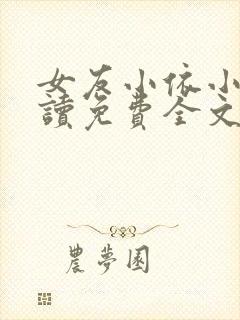 女友小依小
讀免費全文
農夢園